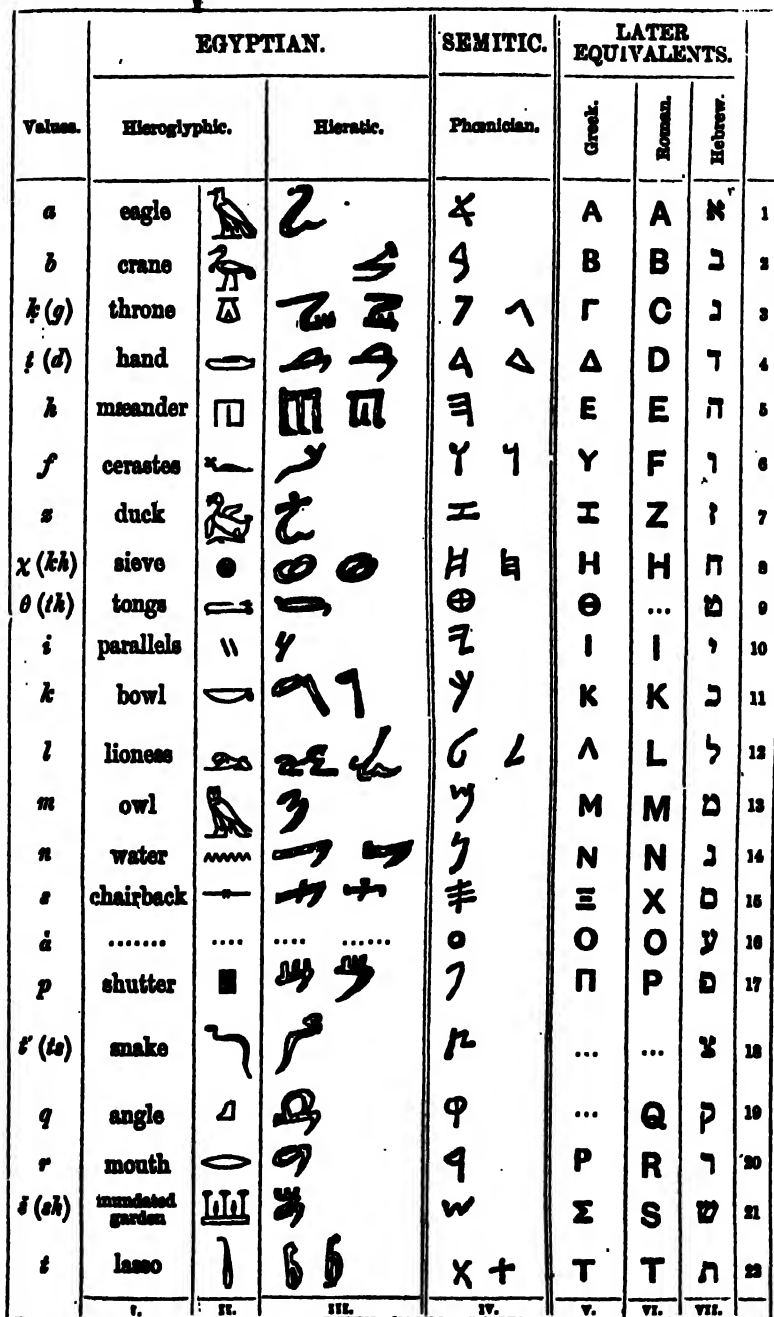 EGYPTIAN. SEMITIC. LATER EQUIVALENTS.
Values. Hieroglyphic. Hieratic. Phœnician. Greek. Roman. Hebrew.
a eagle A A א 1
b crane B B ב 2
ḳ (g) throne Γ C ג 3
ṭ (d) hand Δ D ד 4
h mæander E E ה 5
f cerastes Y F ו 6
z duck I Z ז 7
χ (kh) sieve H H ח 8
θ (th) tongs Θ ... ט 9
i parallels I I י 10
k bowl K K כ 11
l lioness Λ L ל 12
m owl M M מ 13
n water N N נ 14
s chairback Ξ X ס 15
ȧ ....... .... .... ...... O O ע 16
p shutter Π P פ 17
t' (ts) snake ... ... צ 18
q angle ... Q ק 19
r mouth P R ר 20
š (sh) inundated garden Σ S ש 21
t lasso T T ת 22
I. II. III. IV. V. VI. VII.